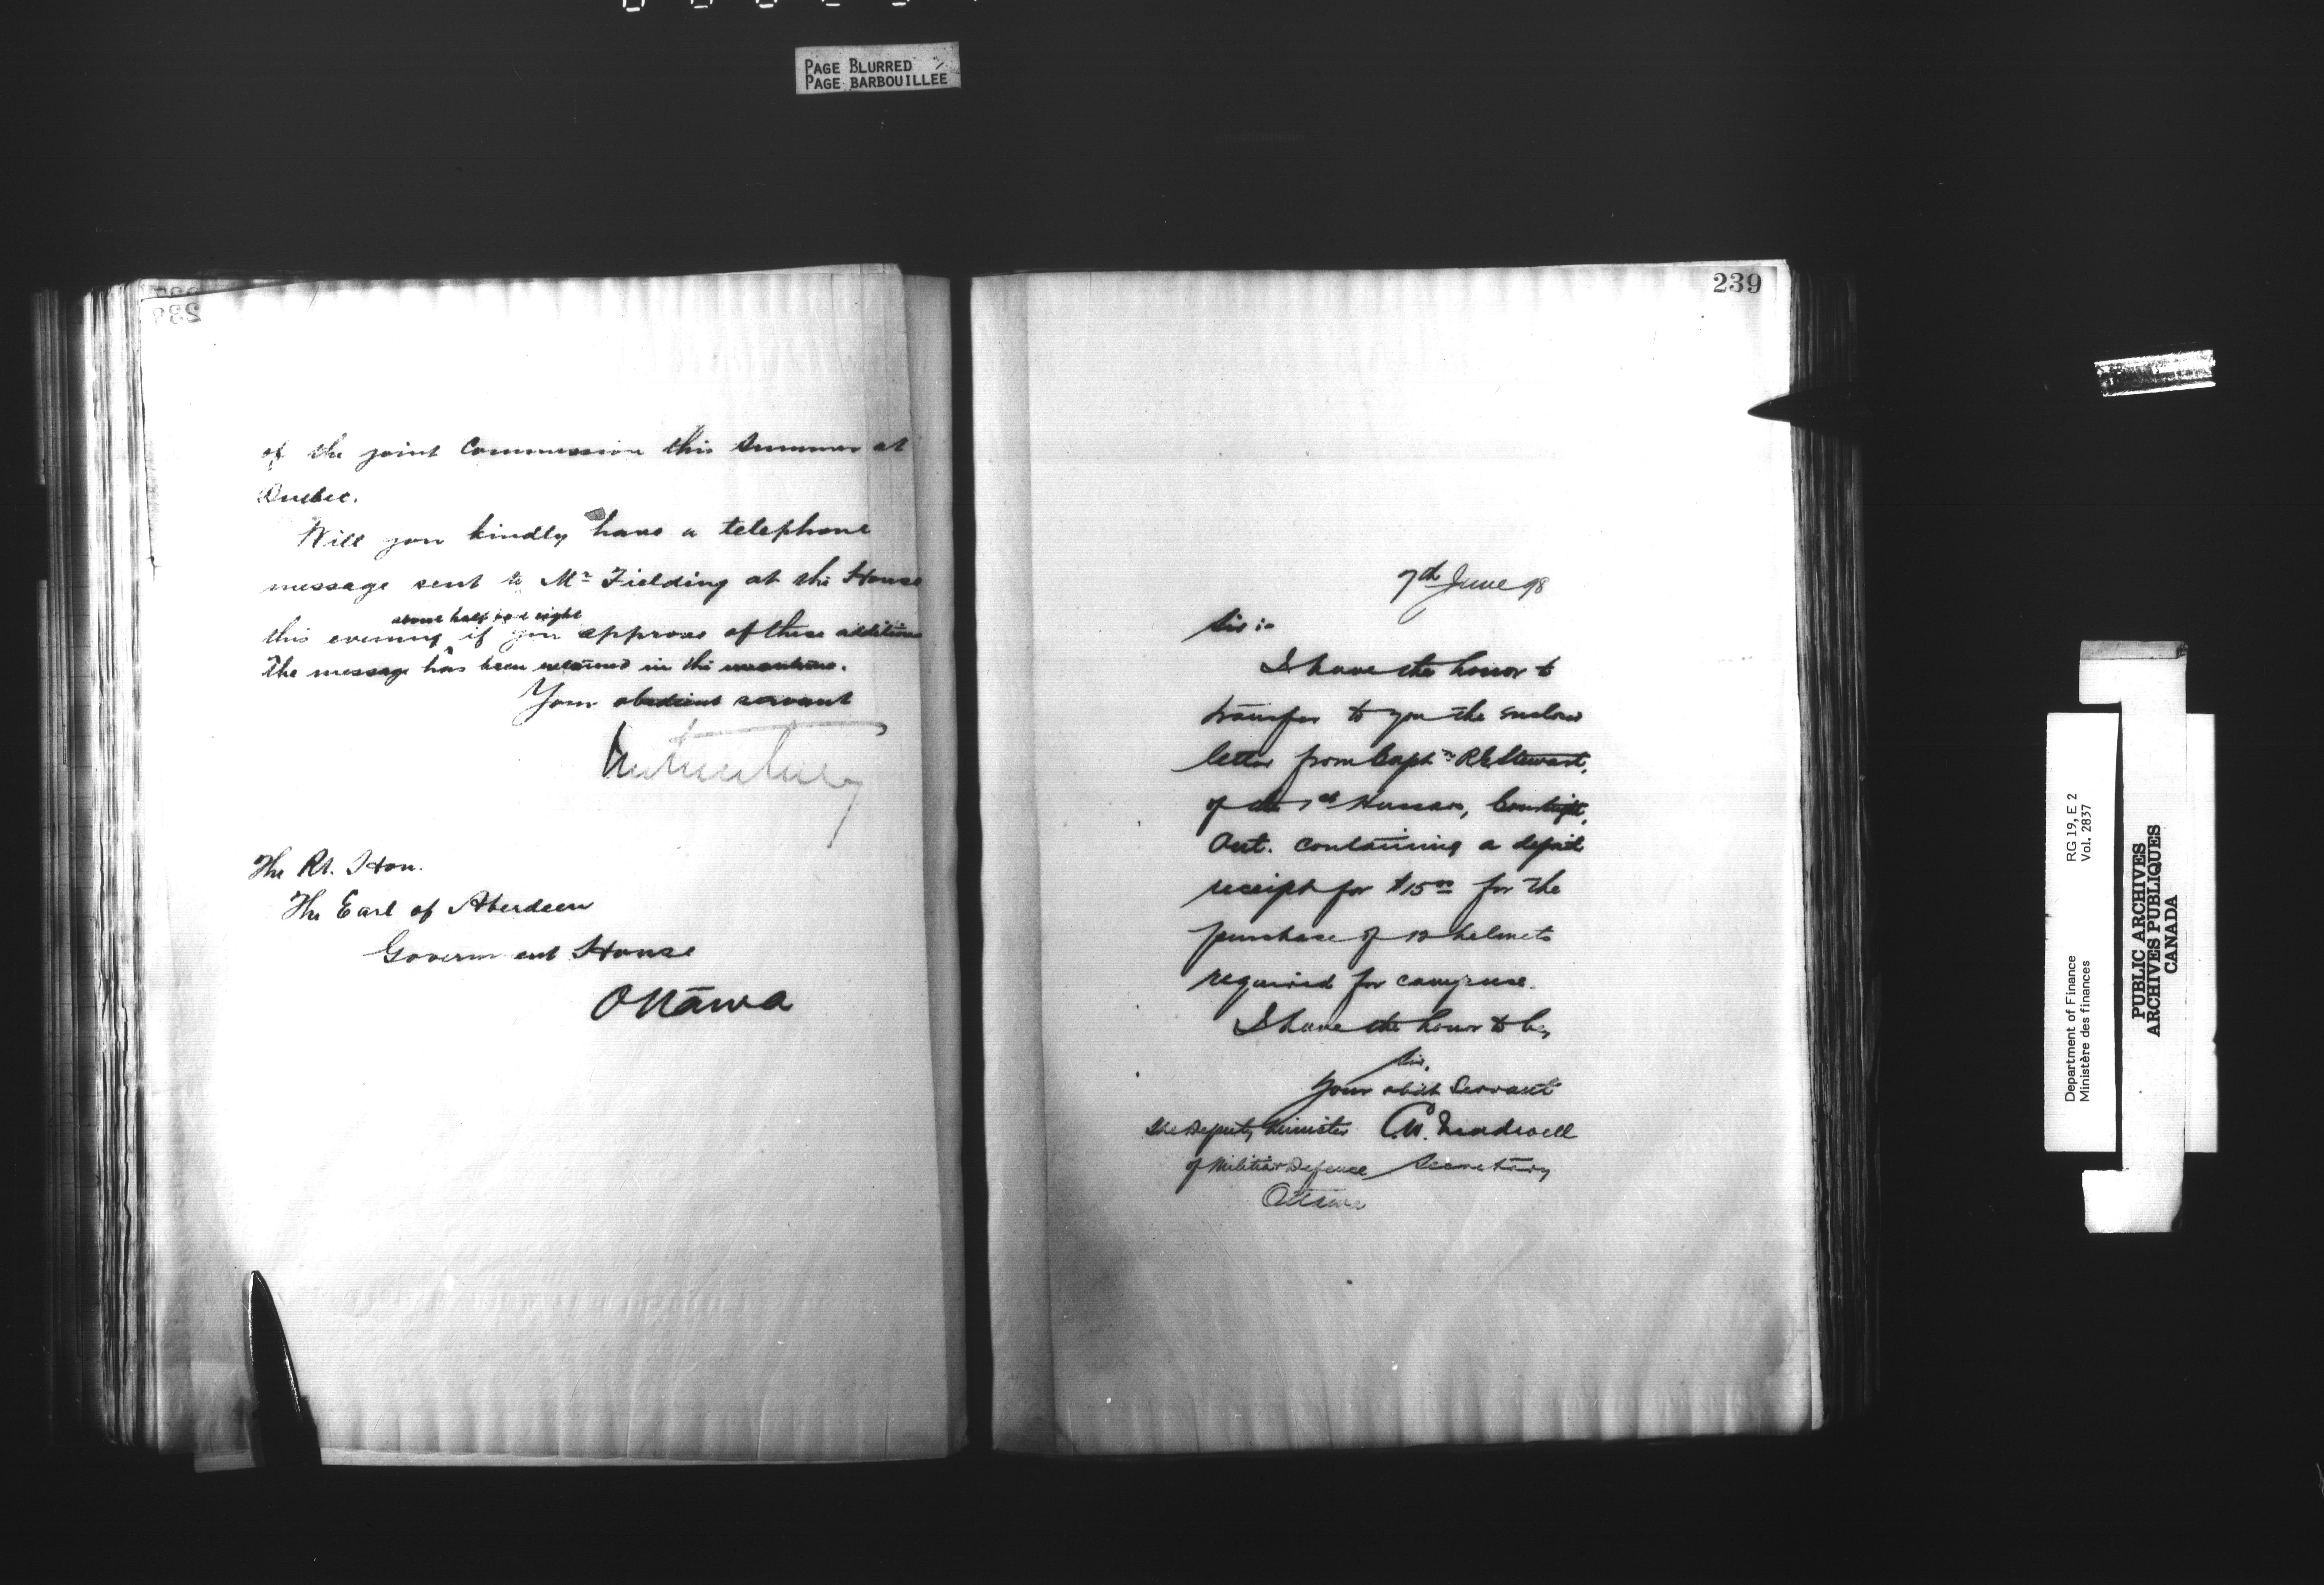 PAGE BLURRED
PAGE BARBOUILLEE
238
of the joint Commission this Summer at
Quebec.
Will you kindly have a telephone
message sent to Mr Fielding at the House
about half past eight
this evening if you approve of these additions
The message has been retained in the meantime.
Your obedient servant
The Rt. Hon.
The Earl of Aberdeen
Government House
Ottawa
239
7th June 98
Sir :-
I have the honor to
transfer to you the enclosed
letter from Captn R E Stewart,
of the 1st Hussars, Courtright,
Ont. containing a deposit
receipt for $15 00 for the
purchase of 12 helmets
required for camp use.
I have the honor to be,
Sir,
Your obdt Servant
The Deputy Minister
of Militia & Defence
Ottawa
Secretary
Department of Finance RG 19, E 2
Ministère des finances Vol. 2837
PUBLIC ARCHIVES
ARCHIVES PUBLIQUES
CANADA